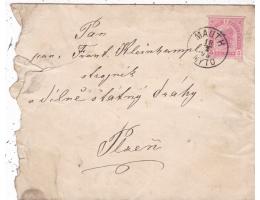 Pan
pan. Frant. Kleinhampl
strojník
v dílně státný dráhy
Plzeň
MAUTH
MÝTO
5